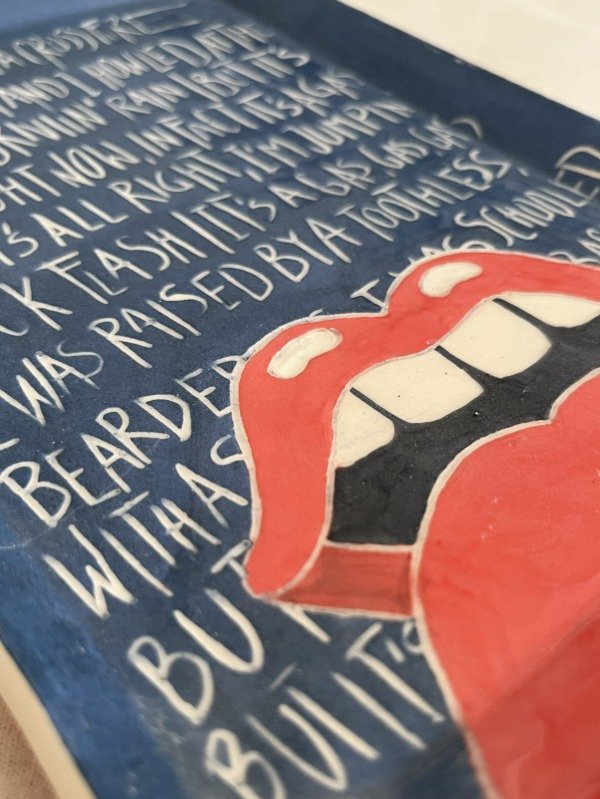 A CROSSFIRE
AND I HOWLED AT THE
RAIN BUT IT'S
RIGHT NOW, IN FACT IT'S A GAS
IT'S ALL RIGHT, I'M JUMPIN
CK FLASH IT'S A GAS, GAS, GAS
I WAS RAISED BY A TOOTHLESS,
BEARDED I WAS SCHOOLED
WITH A S
BUT
BUT IT'S